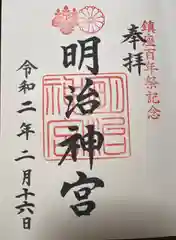 鎮座百年祭記念
奉拝
明治神宮
令和二年二月十六日
明治神宮